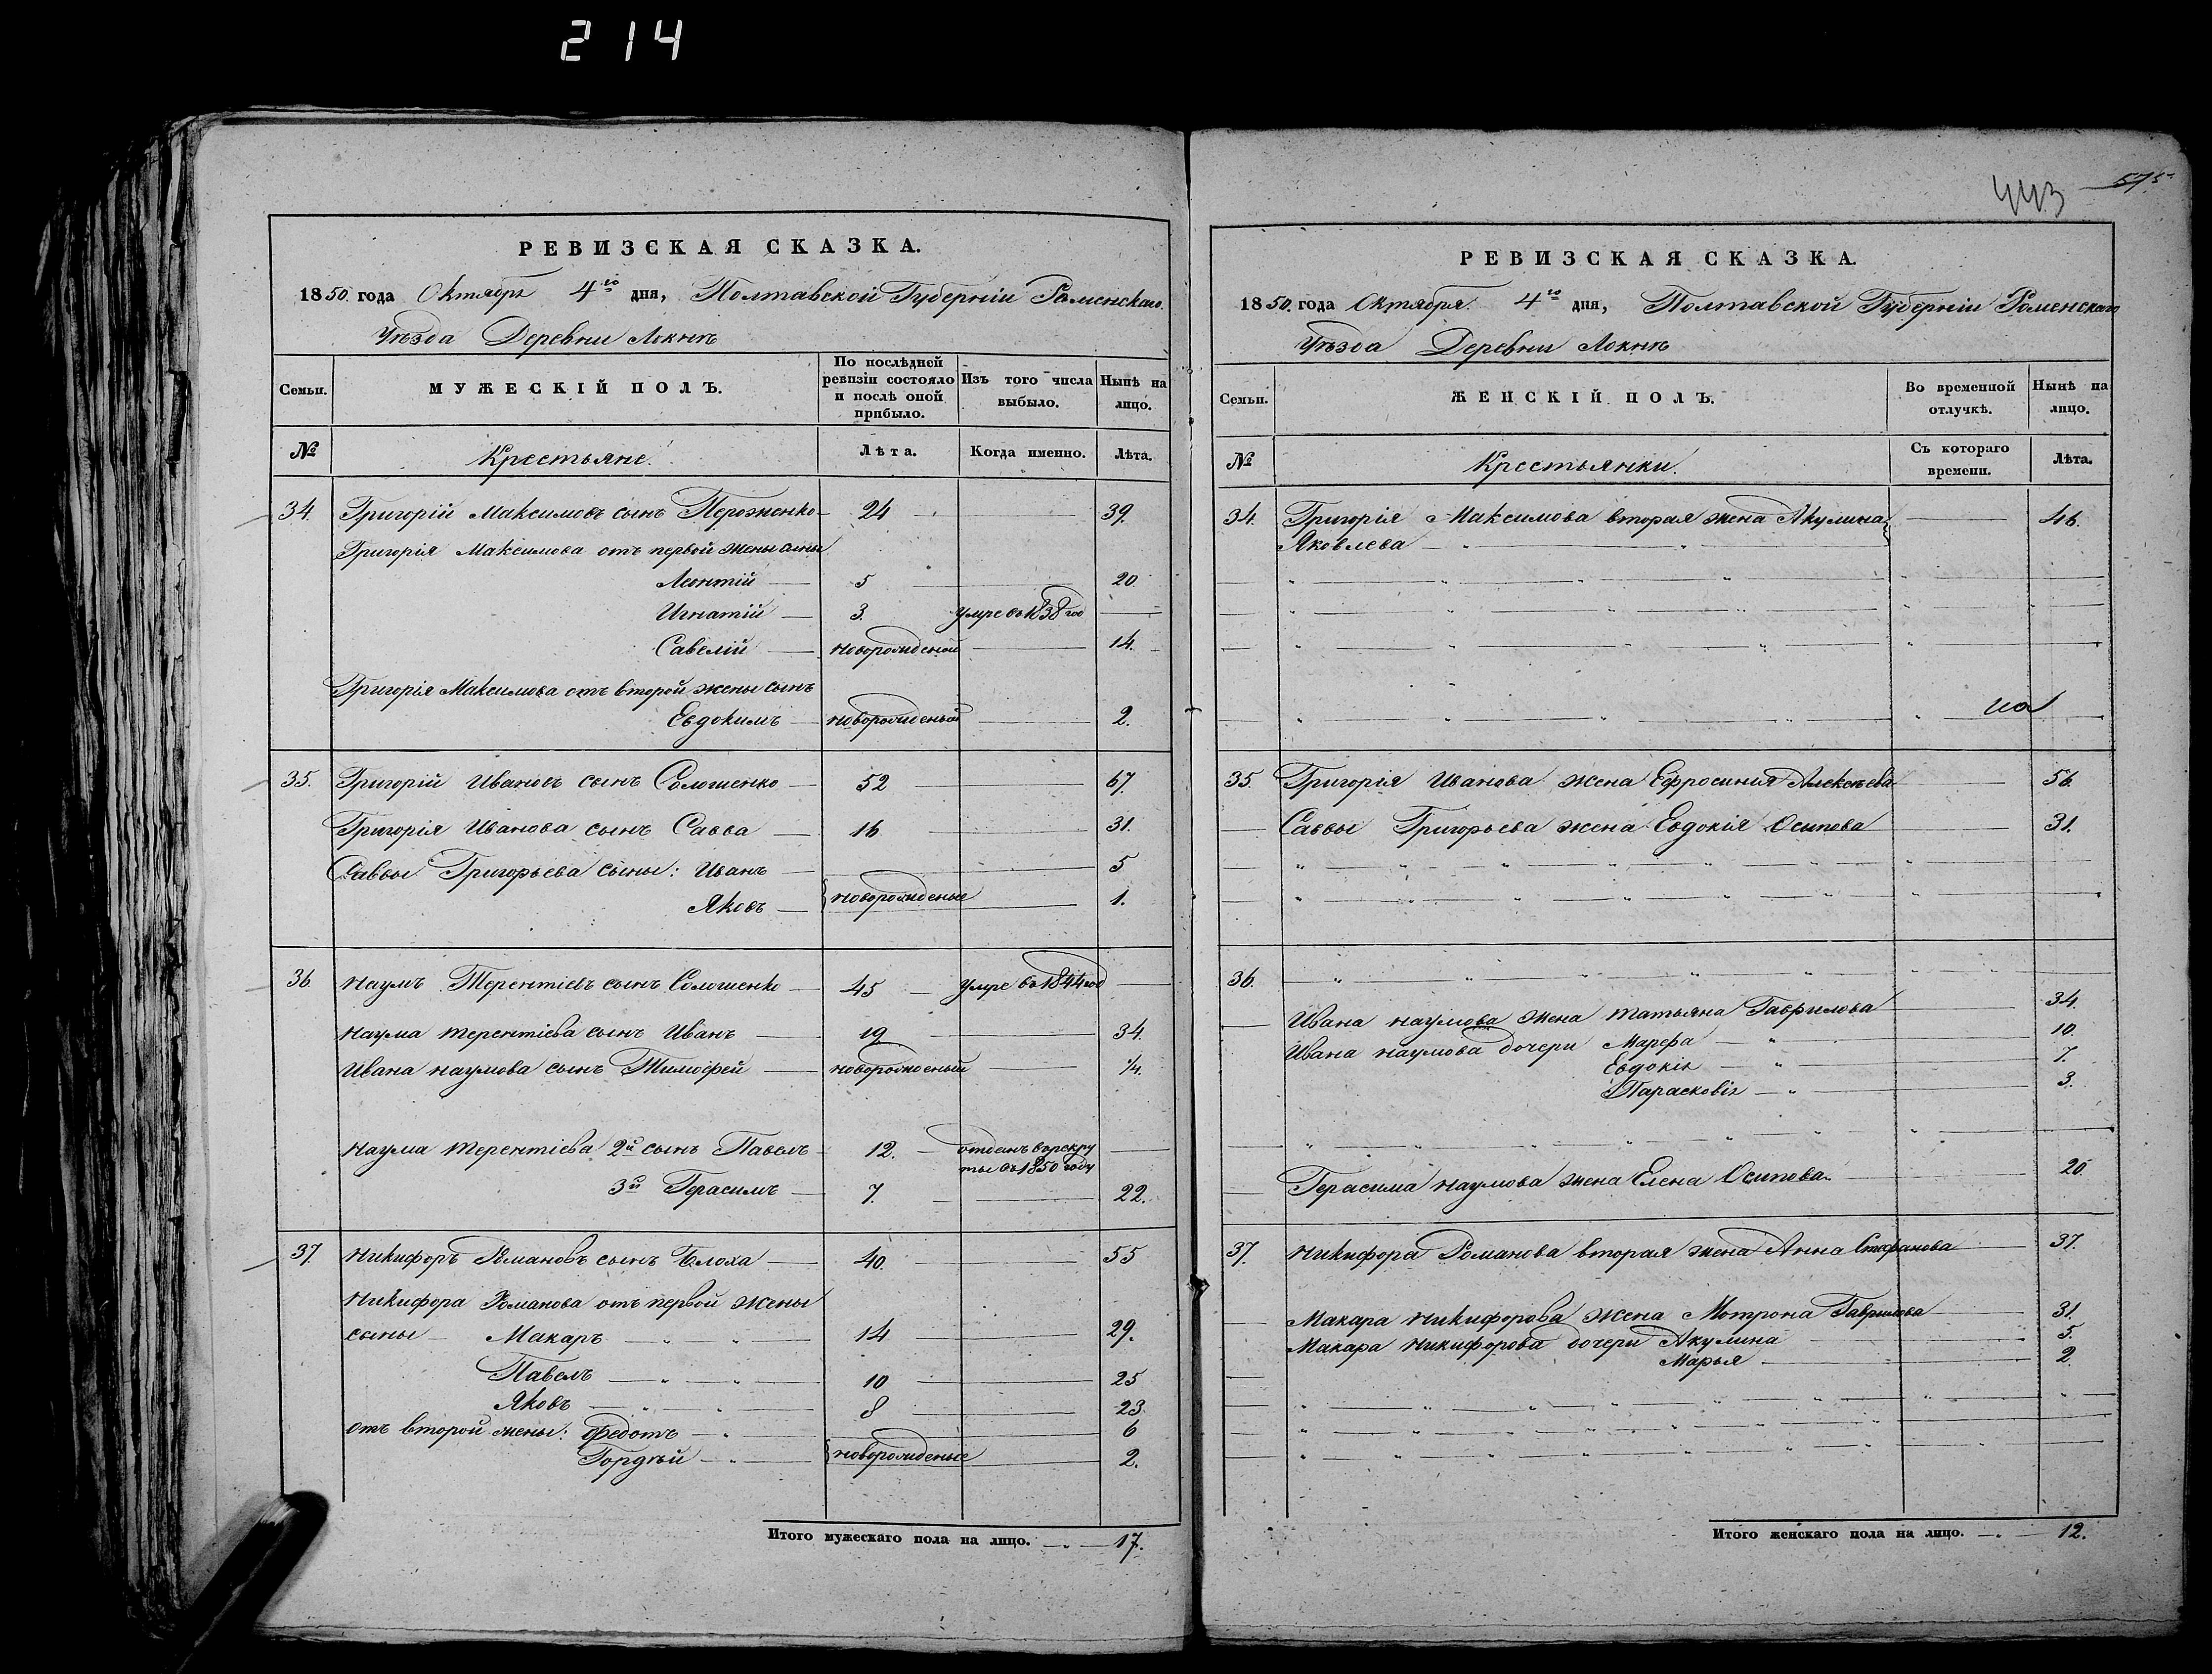 214
443
575
РЕВИЗСКАЯ СКАЗКА.
1850. года Октября 4го дня, Полтавской Губерніи Роменскаго
Уѣзда Деревни Локнѣ
Семьи.
МУЖЕСКІЙ ПОЛЪ.
По послѣдней ревизіи состояло и послѣ оной прибыло.
Изъ того числа выбыло.
Нынѣ на лицо.
№
Крестьяне.
Лѣта.
Когда именно.
Лѣта.
34. Григорій Максимовъ сынъ 24 39.
Григорія Максимова отъ первой жены сыны
Леонтій 5 20
Игнатій 3. умре въ 1838 год
Савелій новорожденой 14.
Григорія Максимова отъ второй жены сынъ
Евдокимъ новорожденый 2.
35. Григорій Ивановъ сынъ Сологиенко 52 67.
Григорія Иванова сынъ Савва 16 31.
Саввы Григорьева сыны: Иванъ 5
Яковъ новорожденые 1.
36. Наумъ Терентіевъ сынъ Сологиенко 45 умре въ 1844 год
Наума Терентіева сынъ Иванъ 19 34.
Ивана Наумова сынъ Тимофей новорожденый 1/4.
Наума Терентіева 2й сынъ Павелъ 12. отданъ въ рекру
ты въ 1850 году
3й Герасимъ 7. 22.
37. Никифоръ Романовъ сынъ Блоха 40. 55
Никифора Романова отъ первой жены
сыны Макаръ 14 29.
Павелъ 10 25
Яковъ 8 23.
отъ второй жены: Федотъ 6
Гордѣй новорожденые 2.
Итого мужескаго пола на лицо. 17.
РЕВИЗСКАЯ СКАЗКА.
1850. года Октября 4го дня, Полтавской Губерніи Роменскаго
Уѣзда Деревни Локнѣ
Семьи.
ЖЕНСКІЙ ПОЛЪ.
Во временной отлучкѣ.
Нынѣ на лицо.
№
Крестьянки.
Съ котораго времени.
Лѣта.
34. Григорія Максимова вторая жена Акулина 46.
Яковлева
35. Григорія Иванова жена Ефросинія Алексѣева 56.
Саввы Григорьева жена Евдокія Осипова 31.
36.
Ивана Наумова жена Татьяна Гаврилова 34.
Ивана Наумова дочери Марфа 10.
Евдокія 7.
Парасковія 3.
Герасима Наумова жена Елена Осипова 20.
37. Никифора Романова вторая жена Анна Стефанова 37.
Макара Никифорова жена Мотрона Гаврилова 31.
Макара Никифорова дочери Акулина 5.
Марья 2.
Итого женскаго пола на лицо. 12.